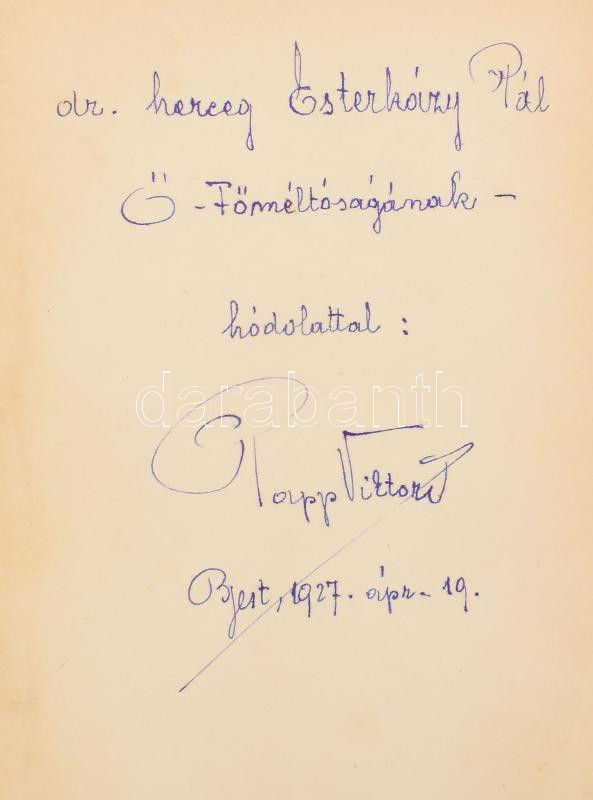 dr. herceg Esterházy Pál
Ő - Főméltóságának -
hódolattal :
darabanth
Papp Viktor
Bpest, 1927. ápr. 19.